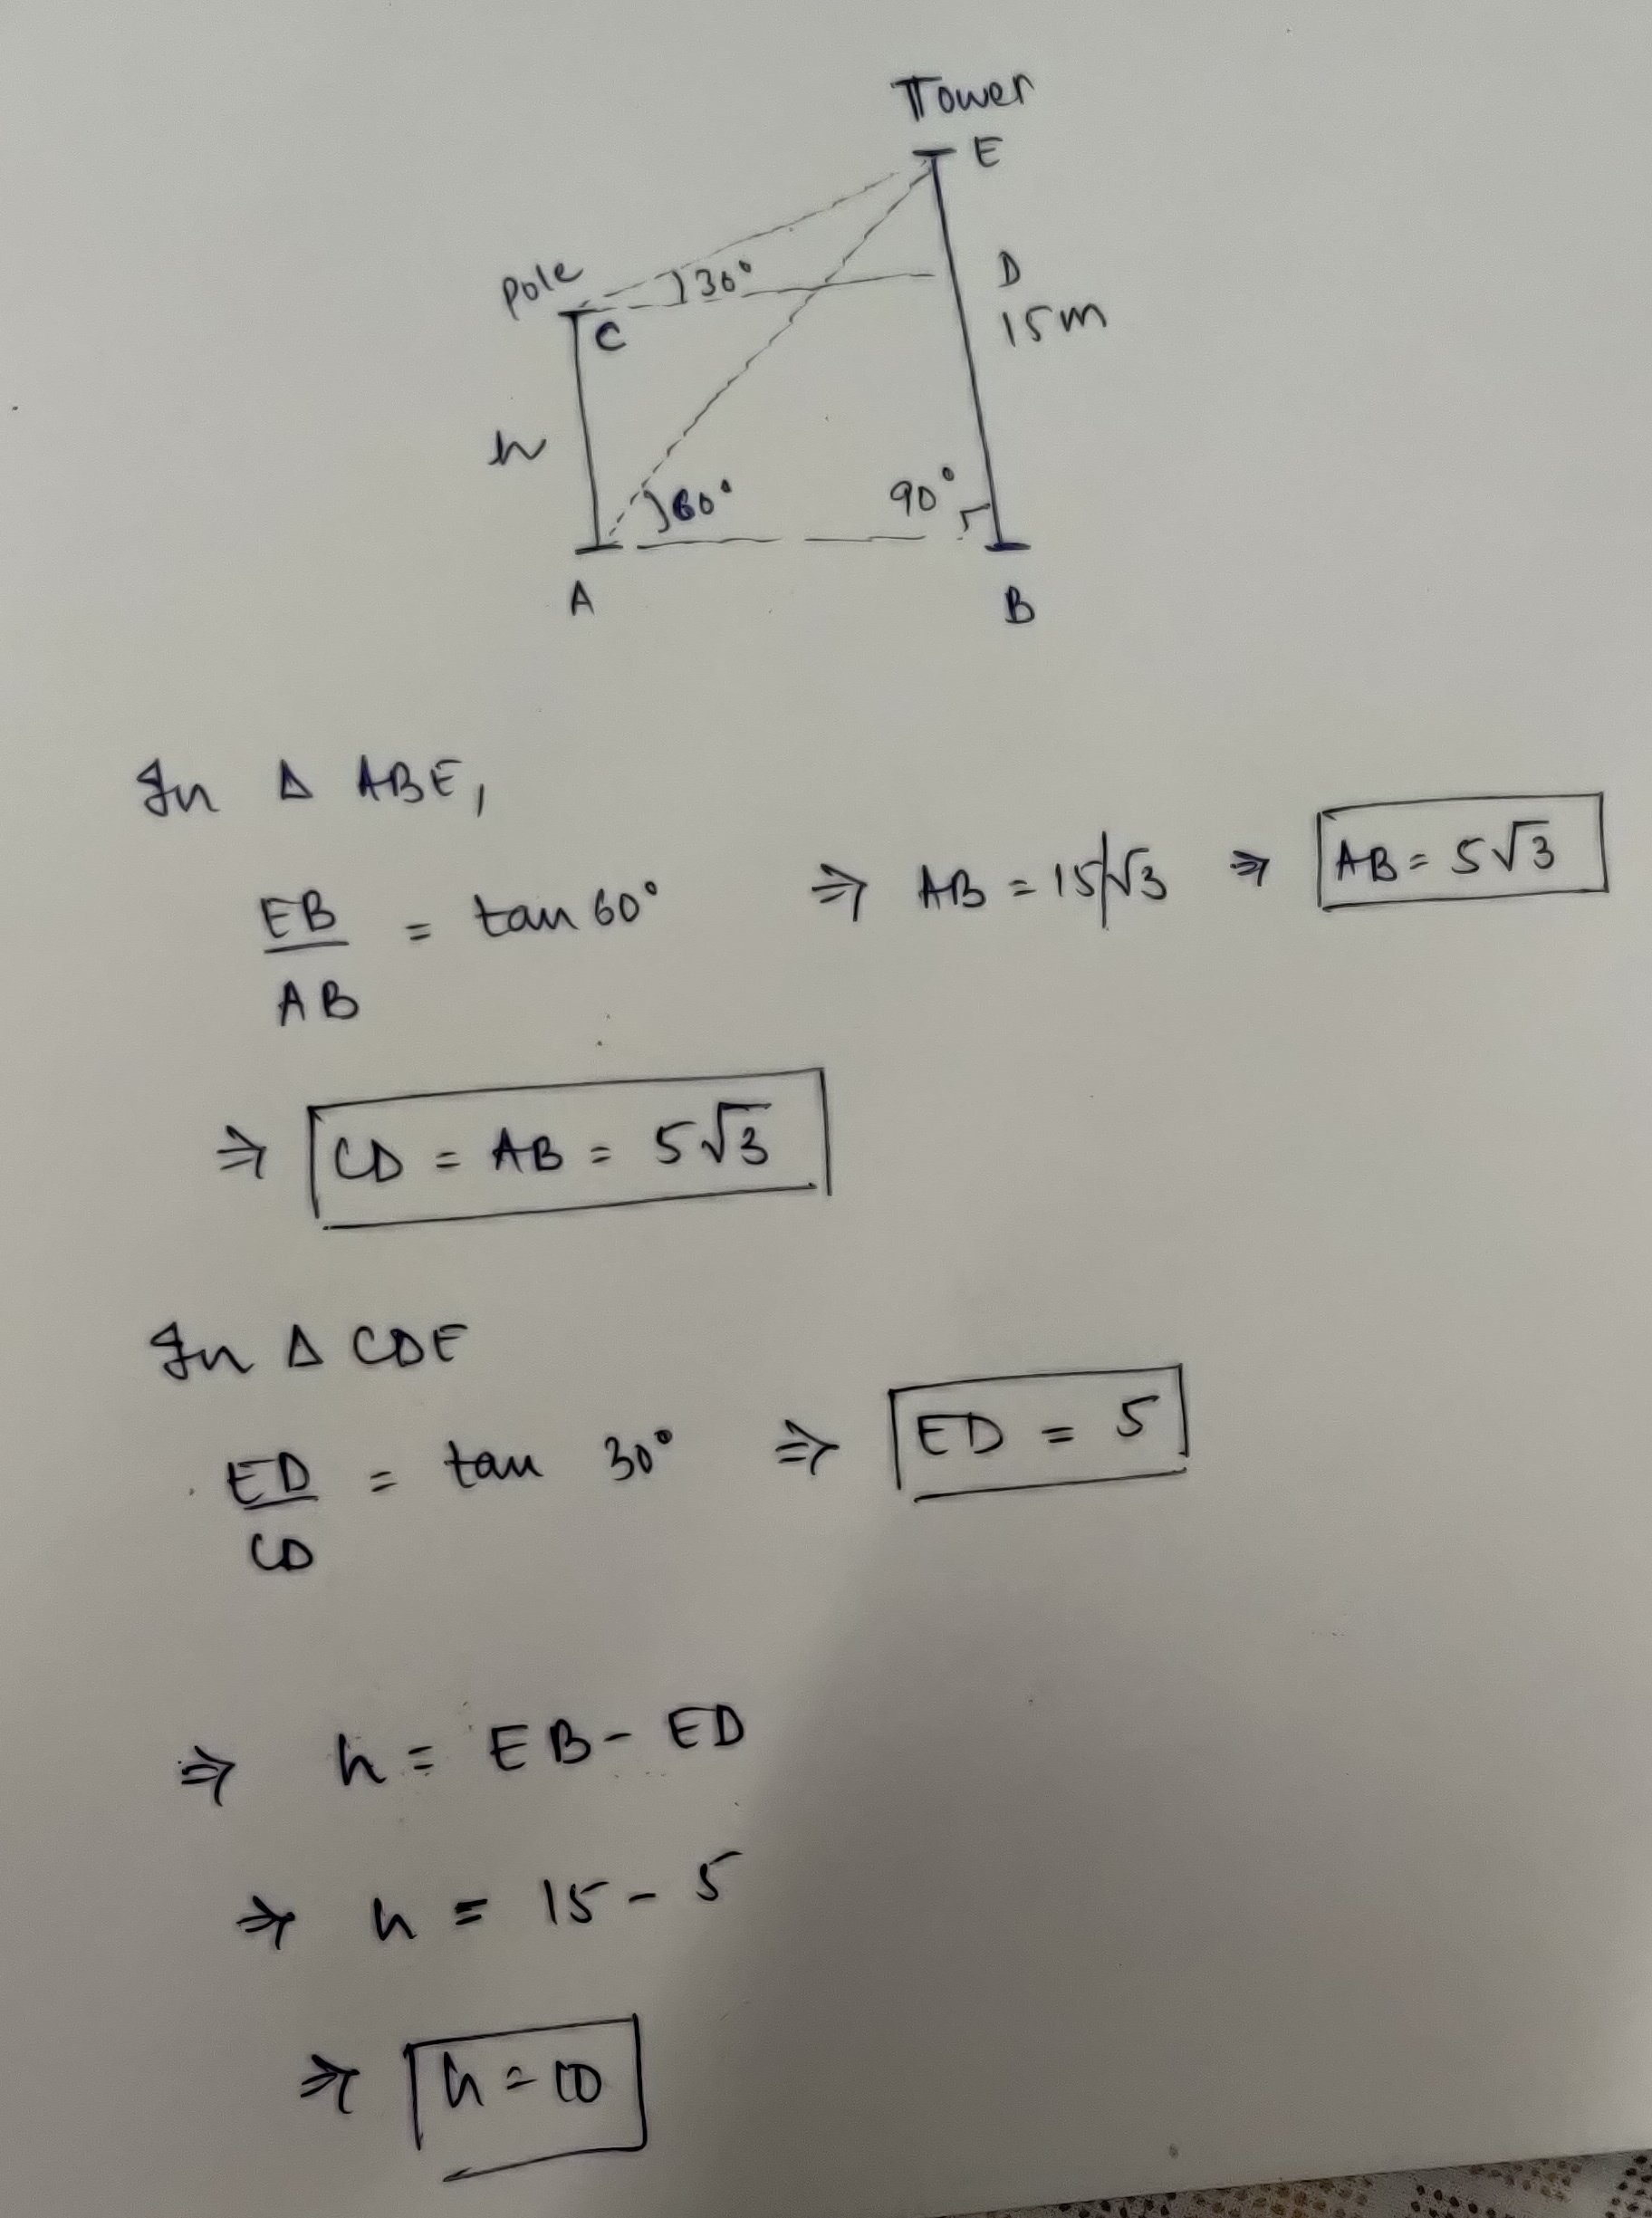 Tower
E
Pole
30°
D
C
15m
h
60°
90°
A
B
In Δ ABE,
EB/AB = tan 60° ⇒ AB = 15/√3 ⇒ AB = 5√3
⇒ CD = AB = 5√3
In Δ CDE
ED/CD = tan 30° ⇒ ED = 5
⇒ h = EB - ED
⇒ h = 15 - 5
⇒ h = 10